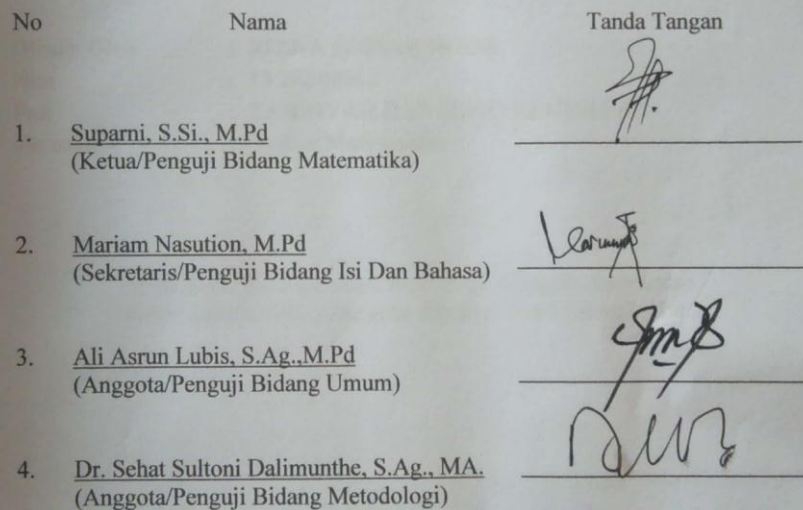 No Nama Tanda Tangan
1. Suparni, S.Si., M.Pd
(Ketua/Penguji Bidang Matematika)
2. Mariam Nasution, M.Pd
(Sekretaris/Penguji Bidang Isi Dan Bahasa)
3. Ali Asrun Lubis, S.Ag.,M.Pd
(Anggota/Penguji Bidang Umum)
4. Dr. Sehat Sultoni Dalimunthe, S.Ag., MA.
(Anggota/Penguji Bidang Metodologi)